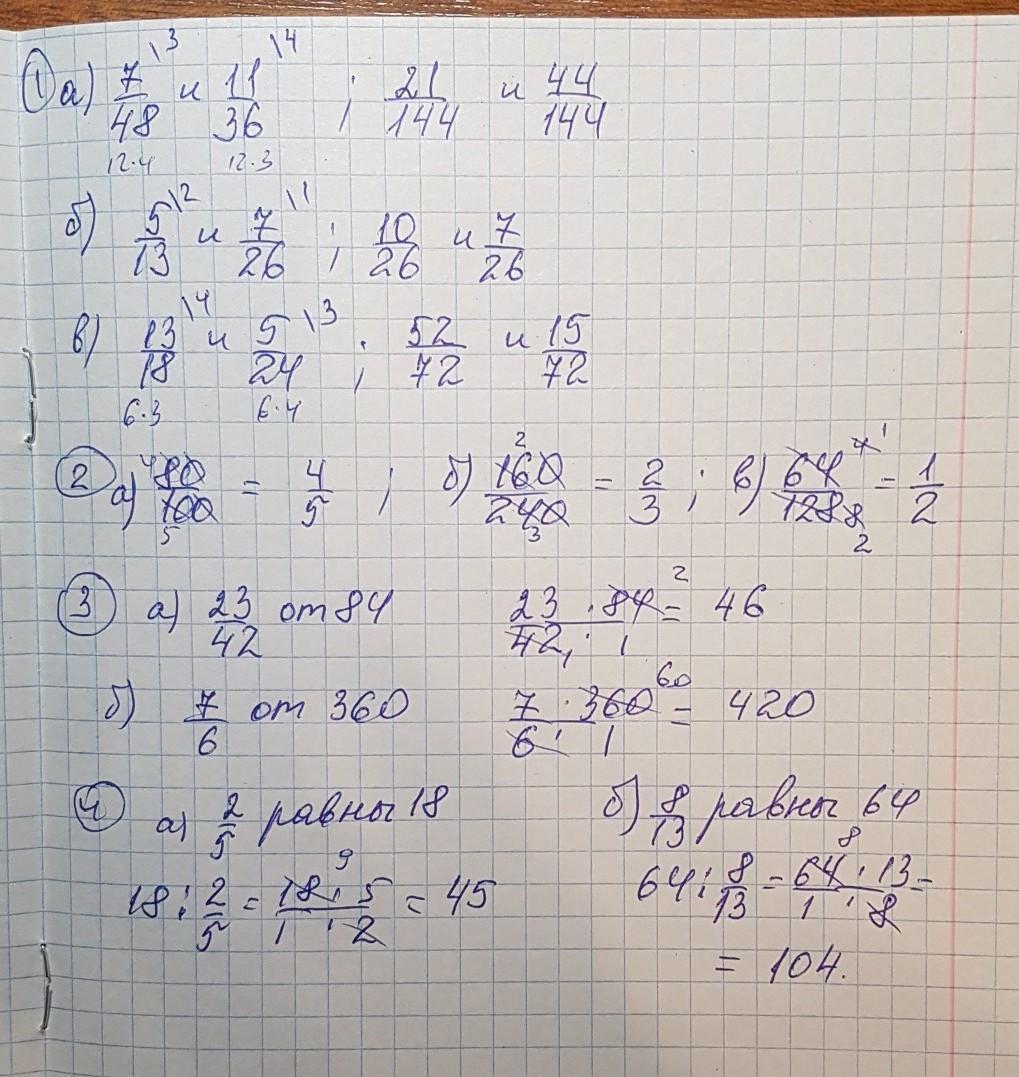 ① а) 7/48 \3 и 11/36 \4 ; 21/144 и 44/144
12·4 12·3
б) 5/13 \2 и 7/26 \1 ; 10/26 и 7/26
в) 13/18 \4 и 5/24 \3 ; 52/72 и 15/72
6·3 6·4
② а) 4 80/100 5 = 4/5 ; б) 2 160/240 3 = 2/3 ; в) 64/128 4 1 8 2 = 1/2
③ а) 23/42 от 84 23 · 84 2 / 42 1 · 1 = 46
б) 7/6 от 360 7 · 360 60 / 6 · 1 = 420
④ а) 2/5 равны 18 б) 8/13 равны 64
18 : 2/5 = 18 9 · 5 / 1 · 2 = 45 64 : 8/13 = 64 8 · 13 / 1 · 8 =
= 104.